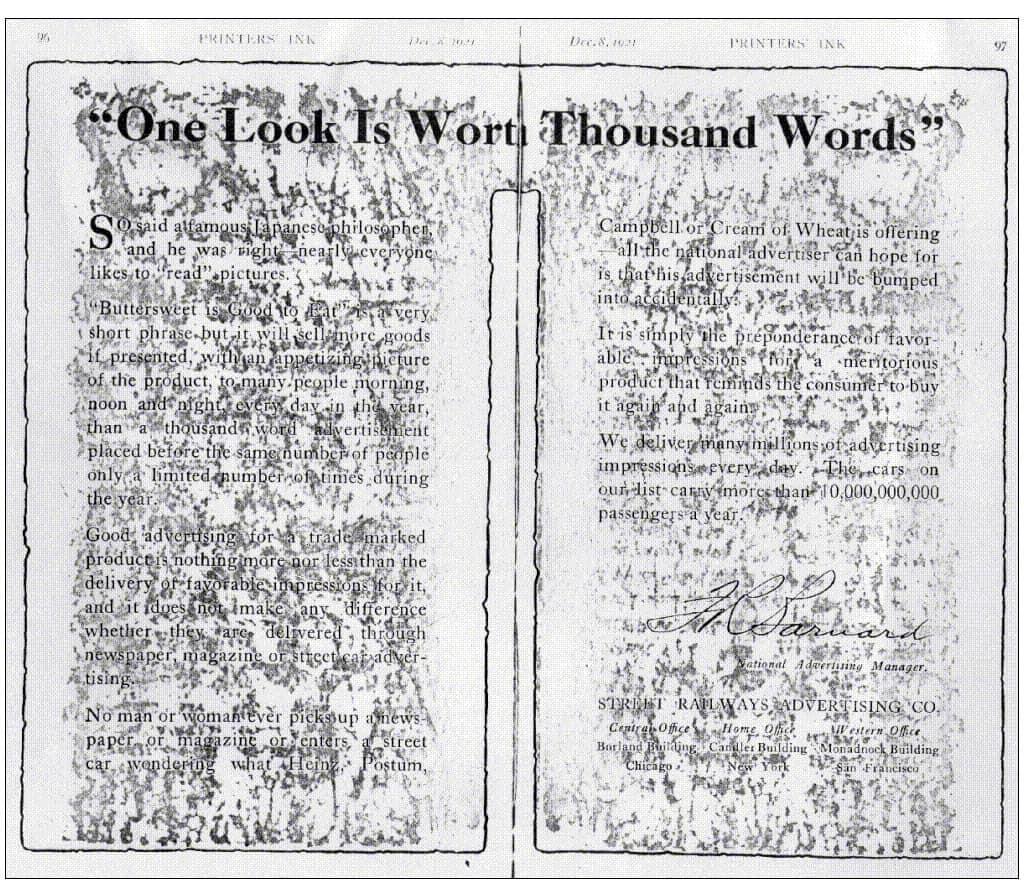 96 PRINTERS' INK Dec. 8, 1921
Dec. 8, 1921 PRINTERS' INK 97
“One Look Is Wort Thousand Words”
SO said a famous Japanese philosopher,
and he was right—nearly everyone
likes to “read” pictures.
“Buttersweet is Good to Eat” is a very
short phrase but it will sell more goods
if presented, with an appetizing picture
of the product, to many people morning,
noon and night, every day in the year,
than a thousand word advertisement
placed before the same number of people
only a limited number of times during
the year.
Good advertising for a trade marked
product is nothing more nor less than the
delivery of favorable impressions for it,
and it does not make any difference
whether they are delivered through
newspaper, magazine or street car adver-
tising.
No man or woman ever picks up a news-
paper or magazine or enters a street
car wondering what Heinz, Postum,
Campbell or Cream of Wheat is offering
—all the national advertiser can hope for
is that his advertisement will be bumped
into accidentally.
It is simply the preponderance of favor-
able impressions for a meritorious
product that reminds the consumer to buy
it again and again.
We deliver many millions of advertising
impressions every day. The cars on
our list carry more than 10,000,000,000
passengers a year.
National Advertising Manager.
STREET RAILWAYS ADVERTISING CO.
Central Office Home Office Western Office
Borland Building Candler Building Monadnock Building
Chicago New York San Francisco